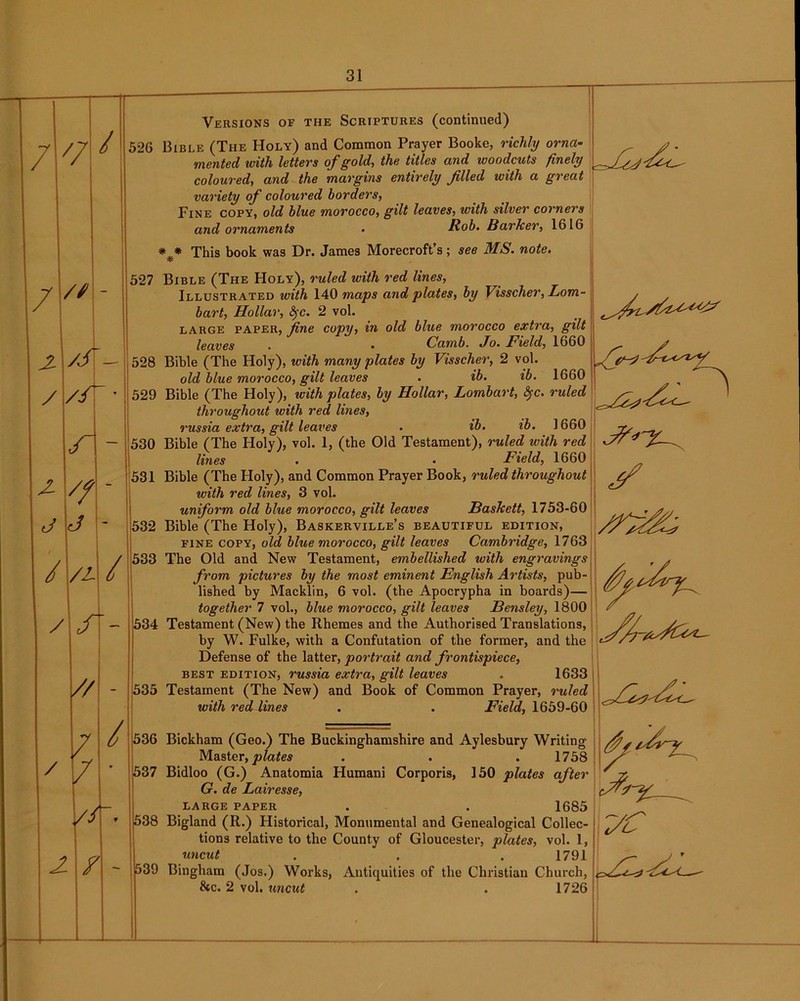 31
Versions of the Scriptures (continued)
526 Bible (The Holy) and Common Prayer Booke, richly orna-
mented with letters of gold, the titles and woodcuts finely
coloured, and the margins entirely filled with a great
variety of coloured borders,
Fine copy, old blue morocco, gilt leaves, with silver corners
and ornaments . Rob. Barker, 1616
*⁎* This book was Dr. James Morecroft's; see MS. note.
527 Bible (The Holy), ruled with red lines,
Illustrated with 140 maps and plates, by Visscher, Lom-
bart, Hollar, &c. 2 vol.
large paper, fine copy, in old blue morocco extra, gilt
leaves . . Camb. Jo. Field, 1660
528 Bible (The Holy), with many plates by Visscher, 2 vol.
old blue morocco, gilt leaves . ib. ib. 1660
529 Bible (The Holy), with plates, by Hollar, Lombart, &c. ruled
throughout with red lines,
russia extra, gilt leaves . ib. ib. 1660
530 Bible (The Holy), vol. 1, (the Old Testament), ruled with red
lines . . Field, 1660
531 Bible (The Holy), and Common Prayer Book, ruled throughout
with red lines, 3 vol.
uniform old blue morocco, gilt leaves Baskett, 1753-60
532 Bible (The Holy), Baskerville's beautiful edition,
fine copy, old blue morocco, gilt leaves Cambridge, 1763
533 The Old and New Testament, embellished with engravings
from pictures by the most eminent English Artists, pub-
lished by Macklin, 6 vol. (the Apocrypha in boards)—
together 7 vol., blue morocco, gilt leaves Bensley, 1800
534 Testament (New) the Rhemes and the Authorised Translations,
by W. Fulke, with a Confutation of the former, and the
Defense of the latter, portrait and frontispiece,
best edition, russia extra, gilt leaves . 1633
535 Testament (The New) and Book of Common Prayer, ruled
with red lines . . Field, 1659-60
536 Bickham (Geo.) The Buckinghamshire and Aylesbury Writing
Master, plates . . . 1758
537 Bidloo (G.) Anatomia Humani Corporis, 150 plates after
G. de Lairesse,
large paper . . 1685
538 Bigland (R.) Historical, Monumental and Genealogical Collec-
tions relative to the County of Gloucester, plates, vol. 1,
uncut . . . 1791
539 Bingham (Jos.) Works, Antiquities of the Christian Church,
&c. 2 vol. uncut . . 1726